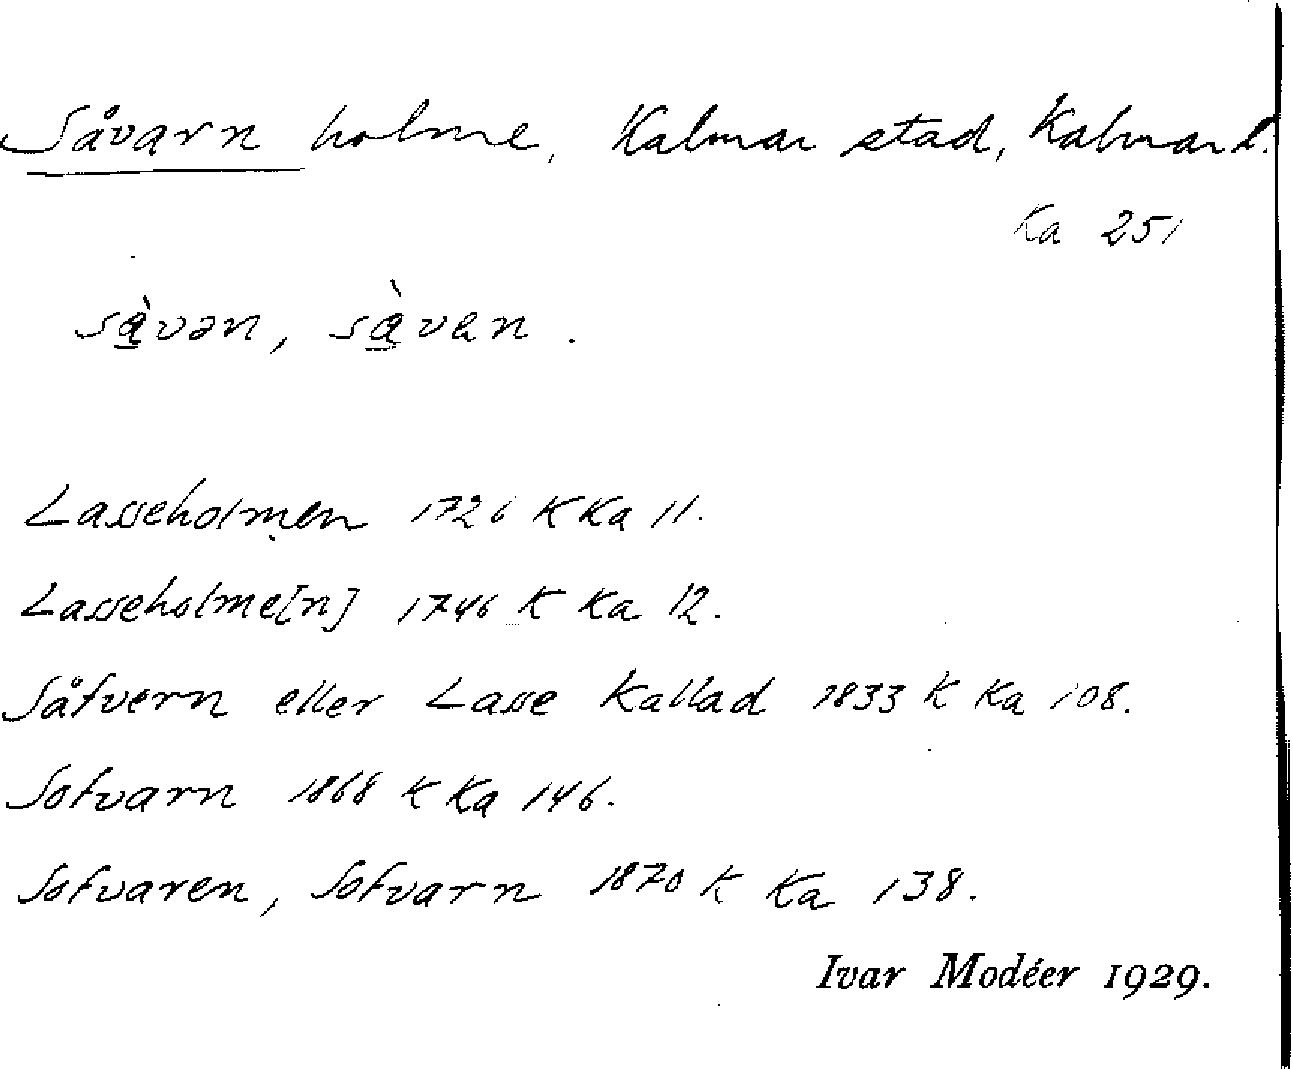 Såvarn holme, Kalmar stad, Kalmar l.
Ka 251
sàvən, sàvan.
Lasseholmen 1726 K Ka 11.
Lasseholme[n] 1746 K Ka 12.
Såfvern eller Lasse kallad 1833 K Ka 108.
Sofvarn 1868 K Ka 146.
Sofvaren, Sofvarn 1870 K Ka 138.
Ivar Modéer 1929.